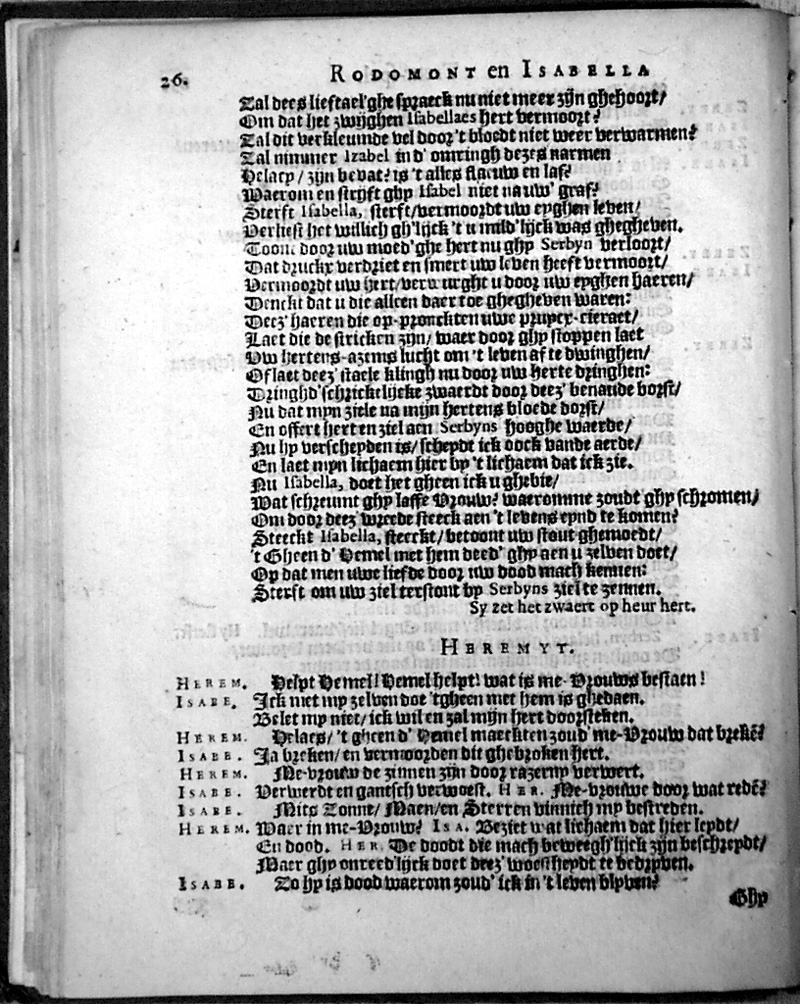 26.
RODOMONT en ISABELLA
Zal dees lieftael'ghe spraeck nu niet meer zijn ghehoort/
Om dat het zwijghen Isabellaes hert vermoort?
Zal dit verkleumde vel door 't bloedt niet weer verwarmen?
Zal nimmer Izabel in d' omringh dezes narmen
Helaey/ zijn bevat? is 't alles flauw en laf?
Waerom en strijft ghy Isabel niet na uw' graf?
Sterft Isabella, sterft/vermoordt uw eyghen leven/
Verliest het willich gh'lijck 't u mild'lijck was ghegheven.
Toont door uw moed'ghe hert nu ghy Serbyn verloort/
Dat druckx verdriet en smert uw leven heeft vermoort/
Vermoordt uw hert/verwurght u door uw eyghen haeren/
Denckt dat u die alleen daer toe ghegheven waren:
Deez' haeren die op-pronckten uwe pruyck-cieraet/
Laet die de stricken zijn/ waer door ghy stoppen laet
Uw hertens-azems lucht om 't leven af te dwinghen/
Of laet deez' staele klingh nu door uw herte dringhen:
Dringhd'schrickelijcke zwaerdt door deez' benaude borst/
Nu dat mijn ziele na mijn hertens bloede dorst/
En offert hert en ziel aen Serbyns hooghe waerde/
Nu hy verscheyden is/ scheydt ick oock vande aerde/
En laet mijn lichaem hier by 't lichaem dat ick zie.
Nu Isabella, doet het gheen ick u ghebie/
Wat schreumt ghy laffe Vrouw? waeromme zoudt ghy schromen/
Om door deez' wreede steeck aen 't levens eynd te komen?
Steeckt Isabella, steeckt/ betoont uw stout ghemoedt/
't Gheen d' Hemel met hem deed' ghy aen u zelven doet/
Op dat men uwe liefde door uw dood mach kennen:
Sterft om uw ziel terstont by Serbyns ziel te zennen.
Sy zet het zwaert op heur hert.
HEREMYT.
HEREM. Helpt Hemel! Hemel helpt! wat is me-Vrouws bestaen!
ISABE. Ick met my zelven doe 'tgheen met hem is ghedaen.
Belet my niet/ ick wil en zal mijn hert doorsteken.
HEREM. Helaes/ 't gheen d' Hemel maeckten zoud' me-Vrouw dat brekē?
ISABE. Ja breken/ en vermoorden dit ghebroken hert.
HEREM. Me-vrouw de zinnen zijn door razerny verwert.
ISABE. Verwerdt en gantsch verwoest. HER. Me-vrouwe door wat redē?
ISABE. Mits Zonne/ Maen/ en Sterren vinnich my bestreden.
HEREM. Waer in me-Vrouw? ISA. Beziet wat lichaem dat hier leydt/
En dood. HER. De doodt die mach beweegh'lijck zijn beschreydt/
Maer ghy onreed'lijck doet deez' woestheydt te bedryven.
ISABE. Zo hy is dood waerom zoud' ick in 't leven blyven?
Ghy